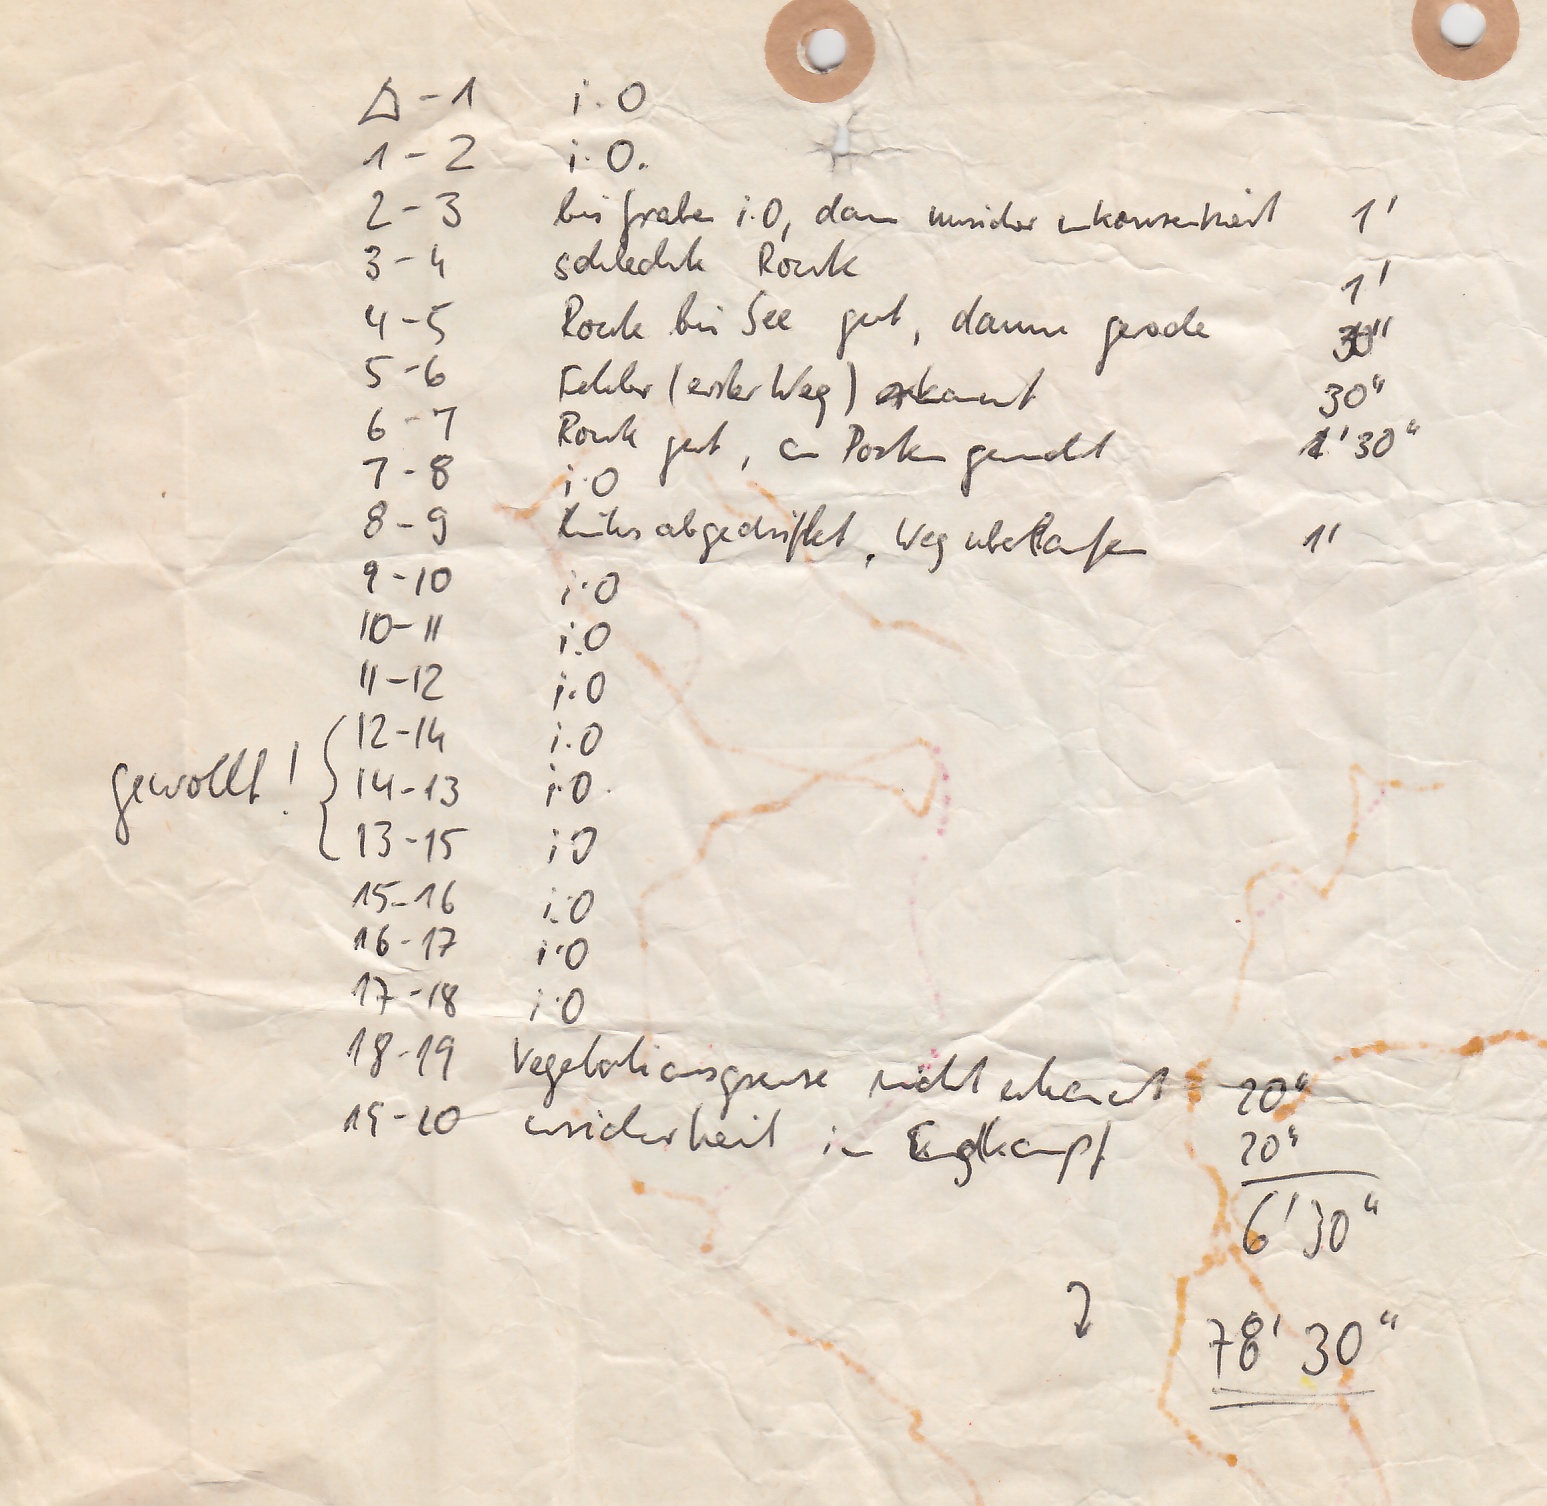 △-1 i.O
1-2 i.O.
2-3 bis Graben i.O, dann unsicher unkonzentriert 1'
3-4 schlechte Route 1'
4-5 Route bis See gut, dann gerade 30"
5-6 Fehler (erster Weg) erkannt 30"
6-7 Route gut, am Posten gesucht 1'30"
7-8 i.O
8-9 links abgedriftet, Weg überlaufen 1'
9-10 i.O
10-11 i.O
11-12 i.O
12-14 i.O
gewollt! 14-13 i.O.
13-15 i.O
15-16 i.O
16-17 i.O
17-18 i.O
18-19 Vegetationsgrenze nicht erkannt 20"
19-20 unsicherheit im 20"
6'30"
78'30"